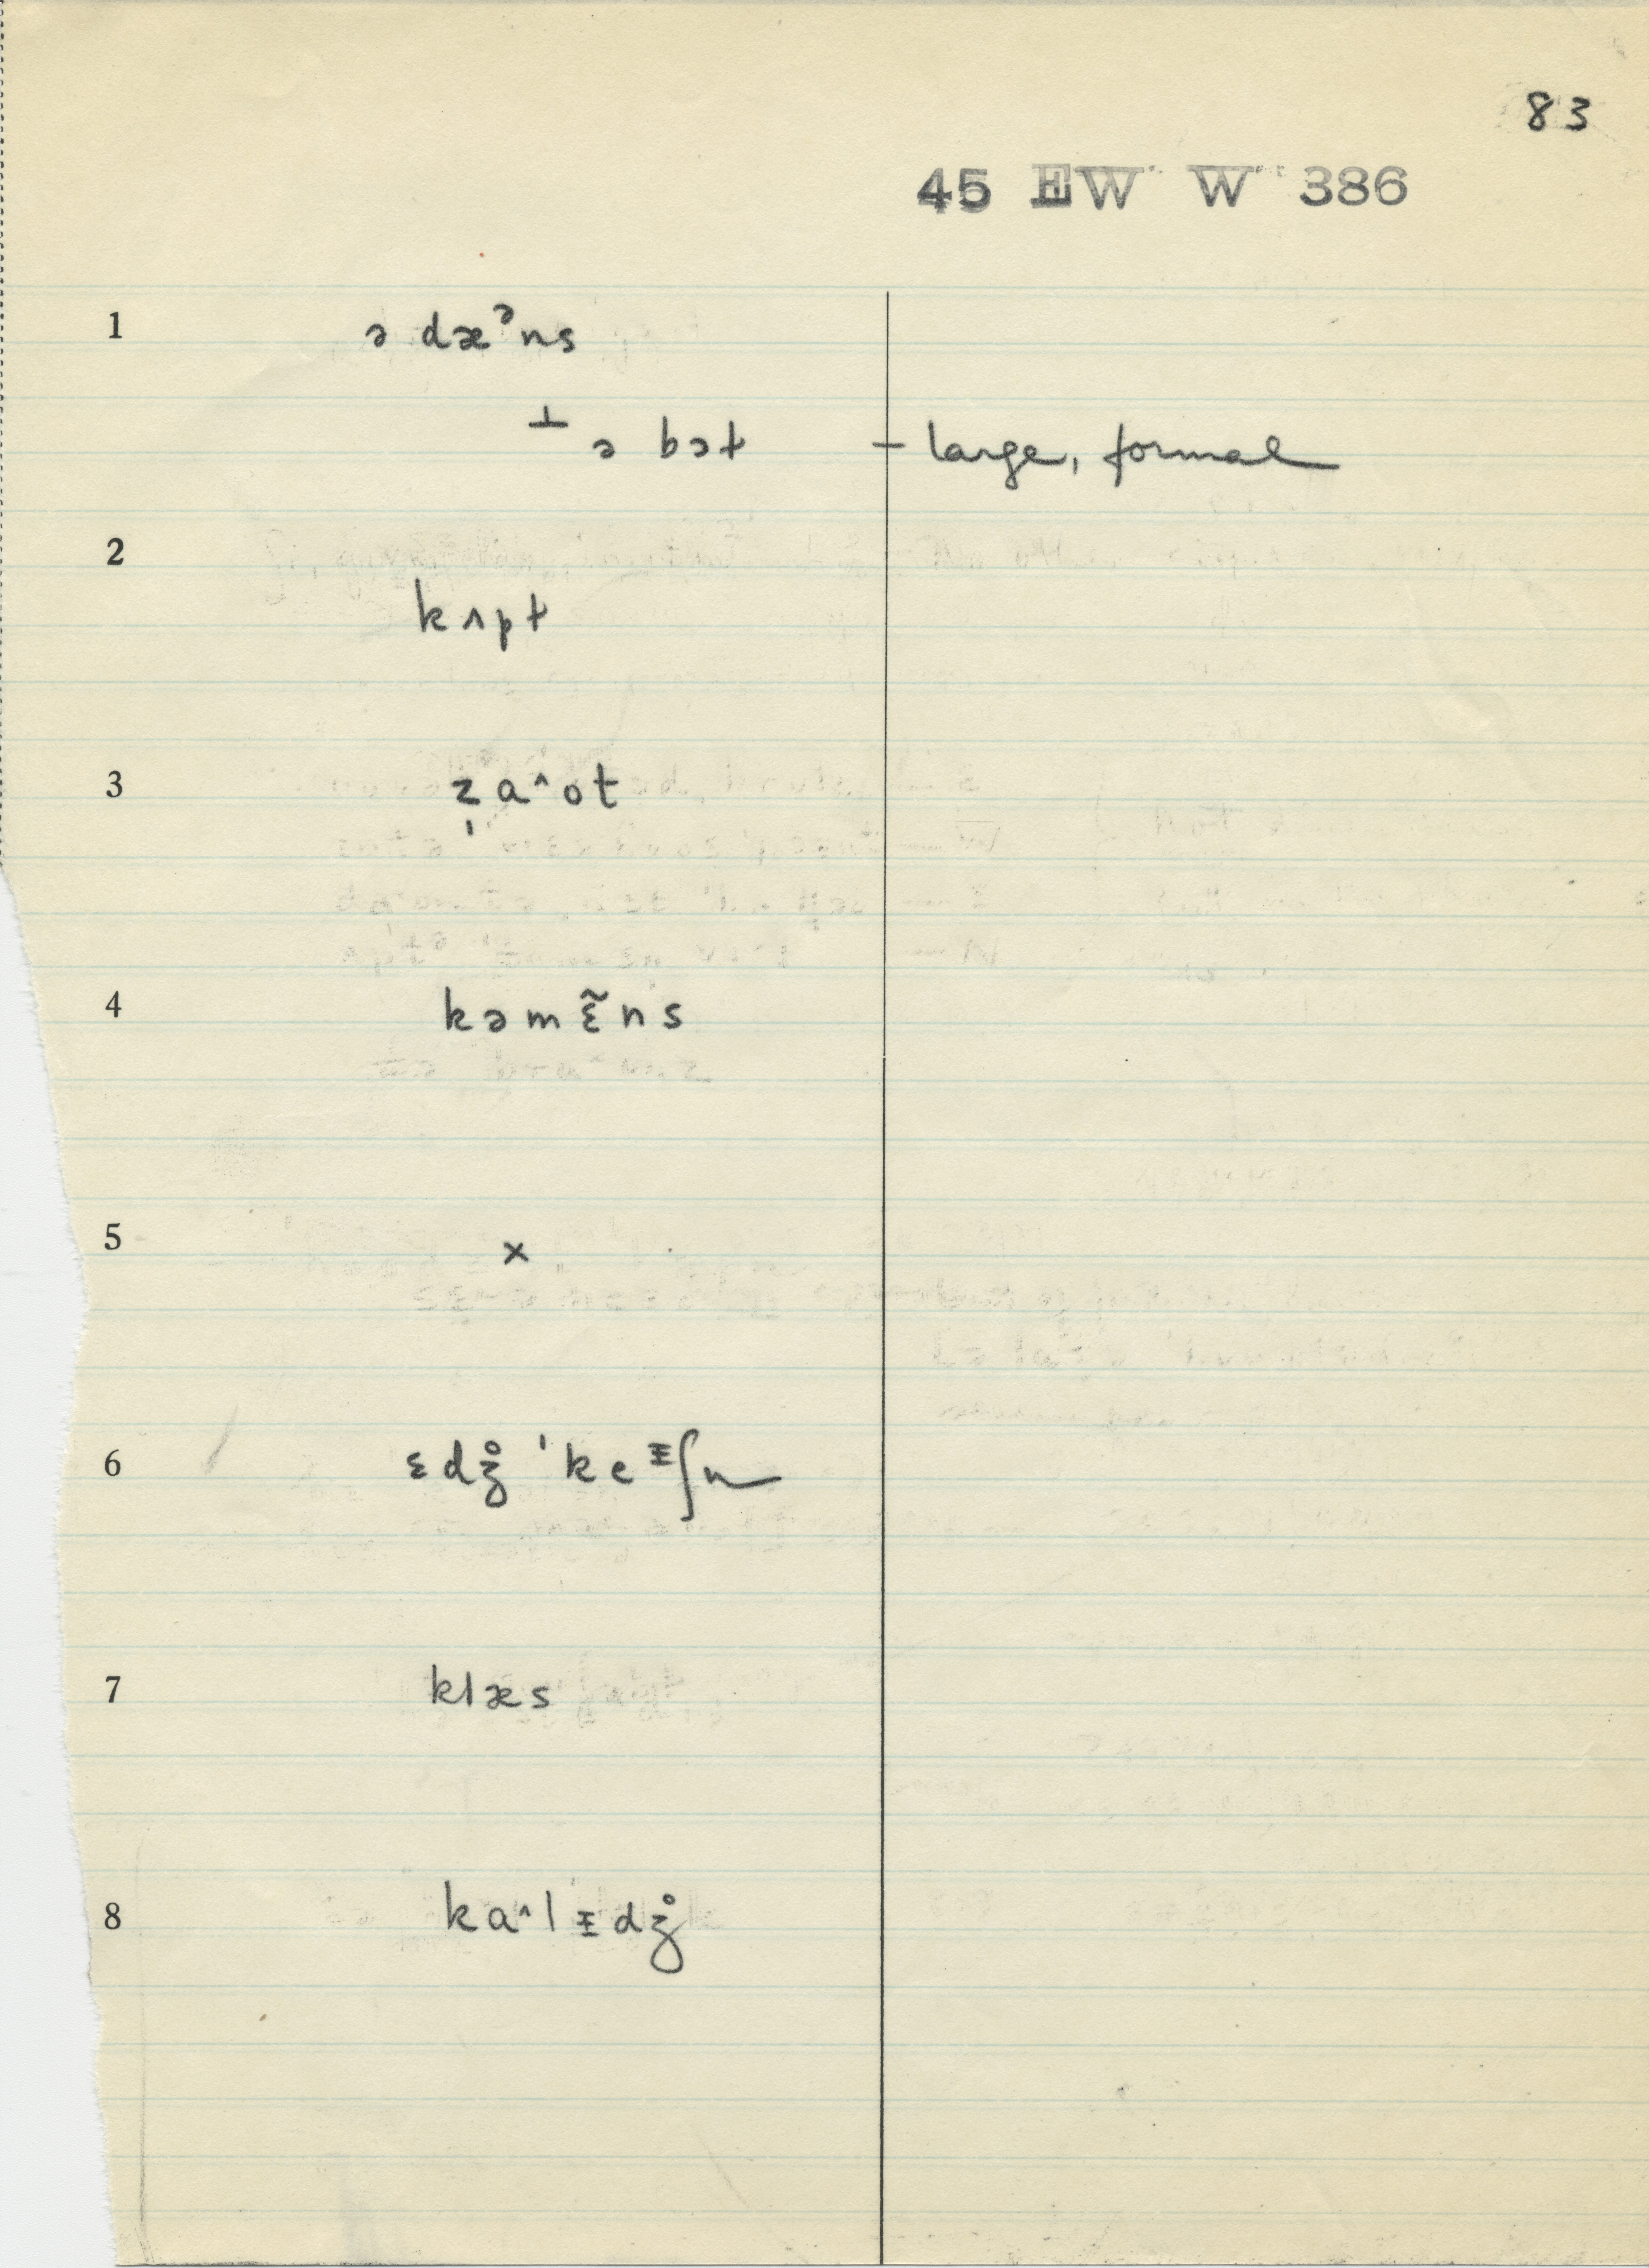 83
45 EW W 386
1 ə dæᵊns
⊥ ə bət – large, formal
2
kʌpt
3 z̩a^ot
4 kəmɛ̃ns
5 x
6 ɛdʒ̊ 'keᵻʃn
7 klæs
8 ka^lᵻdʒ̊